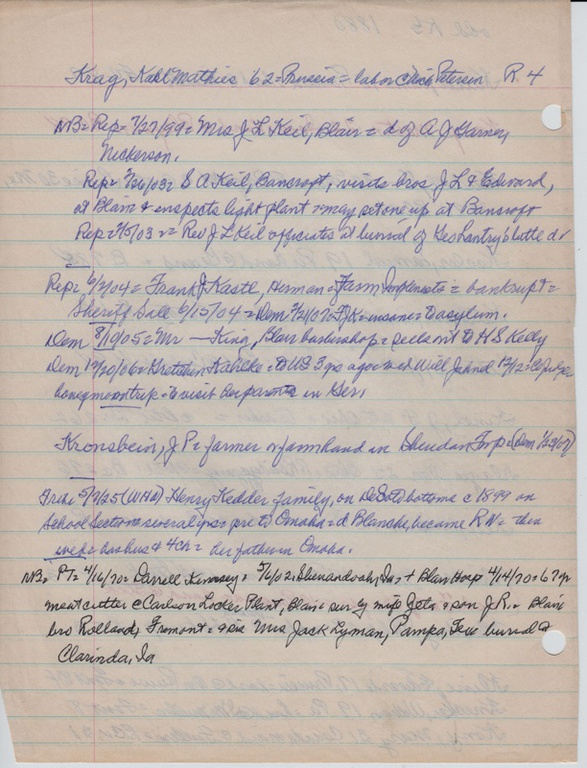 Krag, Karl Mathies '62 = Prussia = labor c Nick Petersen R 4
NB = Rep = 7/27/99 = Mrs J L Keil, Blair = d of A J Garner,
Nickerson.
Rep = 7/26/03 = S A Keil, Bancroft, visits bros J L & Edward,
at Blair & inspects light plant may set one up at Bancroft
Rep = /03 = Rev J L Keil officiates at burial of Geo Lantry's little d
Rep = 6/ /04 = Frank J Kastl, Herman = Farm Implements = bankrupt =
Sheriff Sale 6/15/04 = Dem 3/21/07 = FJK = insane = to asylum.
Dem 8/19/05 = Mr — King, Blair barbershop = sells int to H S Kelly
Dem 12/20/06 = Gretchen Kahlke = to US 3 ys ago = wed Will Jahnel 12/12 =
honeymoon trip = to visit her parents in Ger.
Kronsbein, J P = farmer or farmhand in Sheridan Twp = (Dem 1/ /07)
5/7/25 (WHD) Henry Kedder family, on DeSoto bottoms c 1899 on
School Section several yrs = prev to Omaha = d Blanche, became R N = then
wed = c husbus & 4 ch = her father in Omaha.
NB = PT = 4/16/70 = Darrell Kinnsey = 5/6/02 = Shenandoah, Ia = + Blair Hosp 4/14/70 = 67 yr
meat cutter c Carlson Locker Plant, Blair = sur by wife Zeta & son J.R. = Blair
bro Rolland, Fremont = & sis Mrs Jack Lyman, Pampa, Tex buried @
Clarinda, Ia